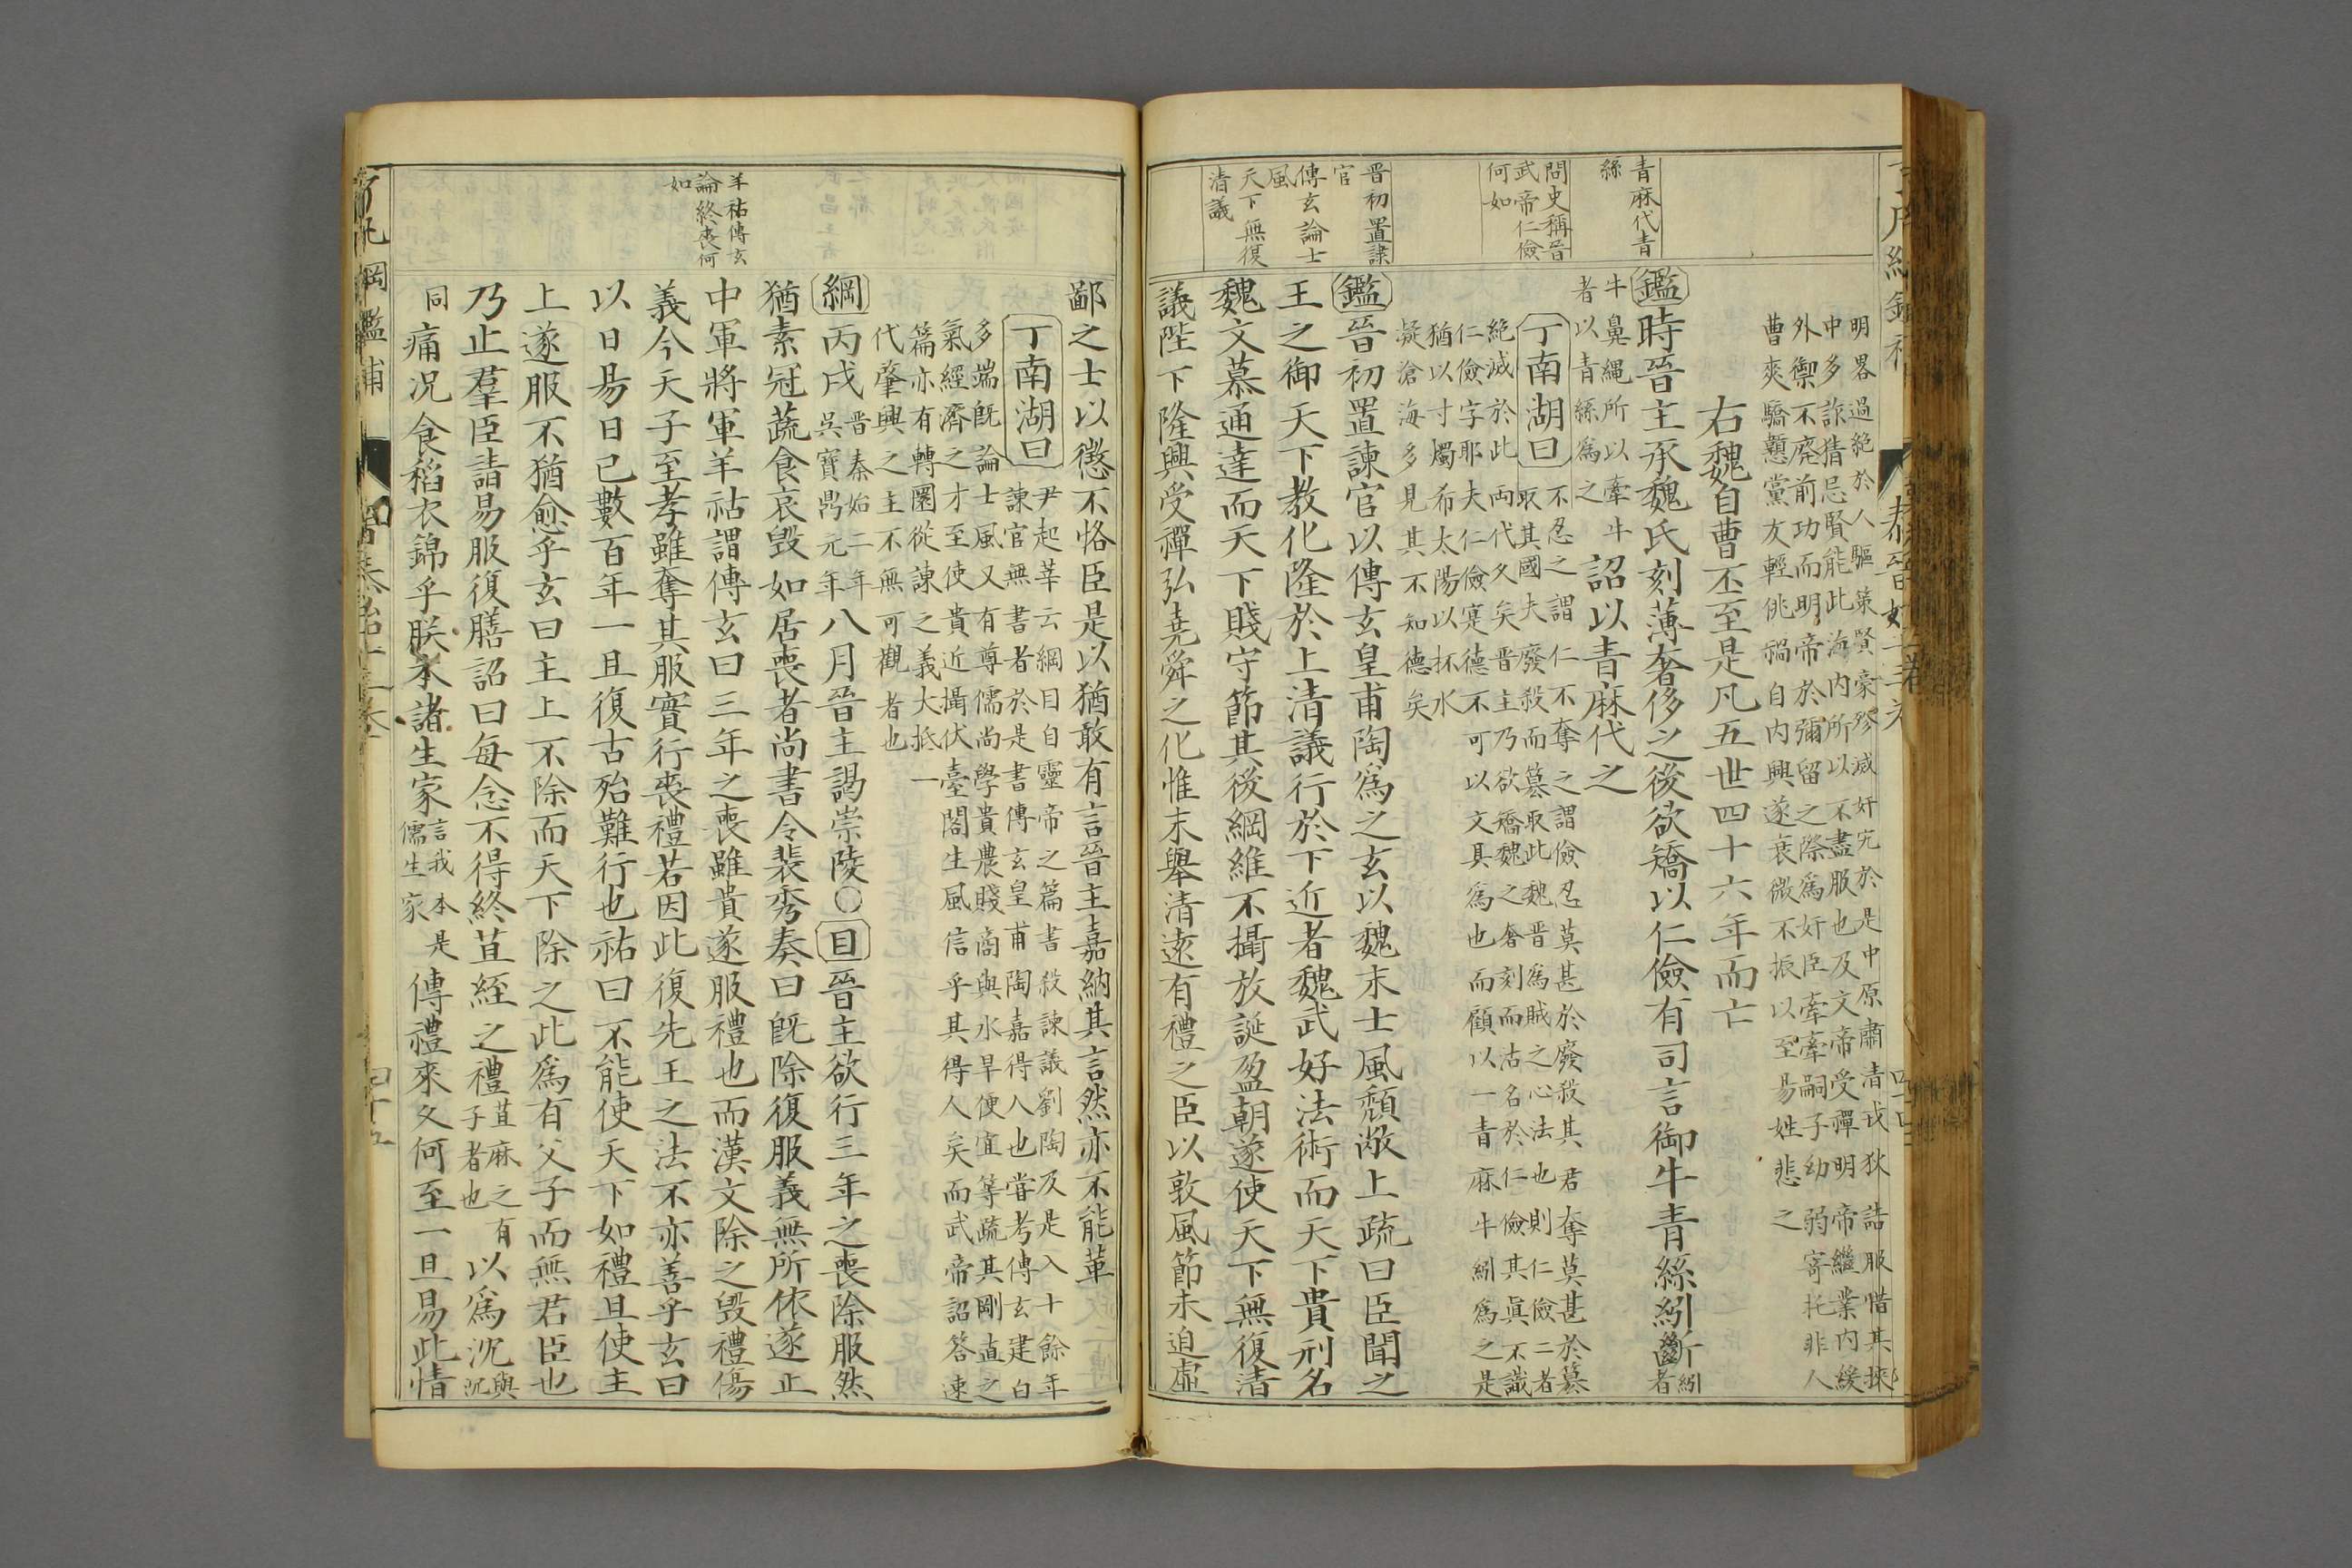 明畧過絕於人驅策賢豪殄滅奸宄於是中原肅清戎狄詰服惜其揀
中多詐猜忌賢能此海内所以不盡服也及文帝受禪明帝繼業内緩
外禦不廃前功而明帝於彌留之際為奸臣牽牽嗣子幼弱寄托非人
曹爽驕戇黨友輕佻禍自内興遂衰微不振以至易姓悲之
右魏自曹丕至是凡五世四十六年而亡
青麻代青
絲
鑑時晉主承魏氏刻薄奢侈之後欲矯以仁儉有司言御牛青絲紖斷紖者
牛鼻繩所以牽牛
者以青絲為之
詔以青麻代之
問史稱晉
武帝仁儉
何如
丁南湖曰不忍之謂仁不奪之謂儉忍莫甚於廢殺其君奪莫甚於簒
取其國夫廢殺而簒取此魏晋為賊之心法也則仁儉二者
絶滅於此兩代久矣晋主乃欲矯魏之奢刻而沽名於仁儉其眞不識
仁儉字耶夫仁儉寔德不可以文具為也而顧以一青麻牛紖為之是
猶以寸燭希太陽以抔水
凝滄海多見其不知德矣
晋初置諌
官
傳玄論士
風
天下無復
清議
鑑晉初置諫官以傳玄皇甫陶爲之玄以魏末士風頽敝上疏曰臣聞之
王之御天下教化隆於上清議行於下近者魏武好法術而天下貴刑名
魏文慕通達而天下賤守節其後綱維不攝放誕盈朝遂使天下無復清
議陛下隆興受禪弘堯舜之化惟末舉清遠有禮之臣以敦風節未迫虛
鄙之士以懲不恪臣是以猶敢有言晉主嘉納其言然亦不能革
丁南湖曰尹起莘云綱目自靈帝之篇書殺諫議劉陶及是入十餘年
諫官無書者於是書傳玄皇甫陶嘉得入也甞考傳玄建白
多端旣論士風又有尊儒尚學貴農賤商與水旱便宜等疏其剛直之
氣經濟之才至使貴近攝伏臺閣生風信乎其得人矣而武帝詔答速
篇亦有轉圜從諫之義大抵一
代肇興之主不無可觀者也
綱丙戌晋泰始二年
吳寶鼎元年八月晉主謁崇陵〇目晉主欲行三年之喪除服然
猶素冠蔬食哀毁如居喪者尚書令裴秀奏曰旣除復服義無所依遂止
羊祜傳玄
論終喪何
如
中軍將軍羊祜謂傳玄曰三年之喪雖貴遂服禮也而漢文除之毁禮傷
義今天子至孝雖奪其服實行喪禮若因此復先王之法不亦善乎玄曰
以日昜日已數百年一旦復古殆難行也祐曰不能使天下如禮且使主
上遂服不猶愈乎玄曰主上不除而天下除之此爲有父子而無君臣也
乃止羣臣請易服復膳詔曰每念不得終苴絰之禮苴麻之有
子者也以爲沉與沉
同痛況食稻衣錦乎朕本諸生家言我本是
儒生家傳禮來久何至一旦易此情